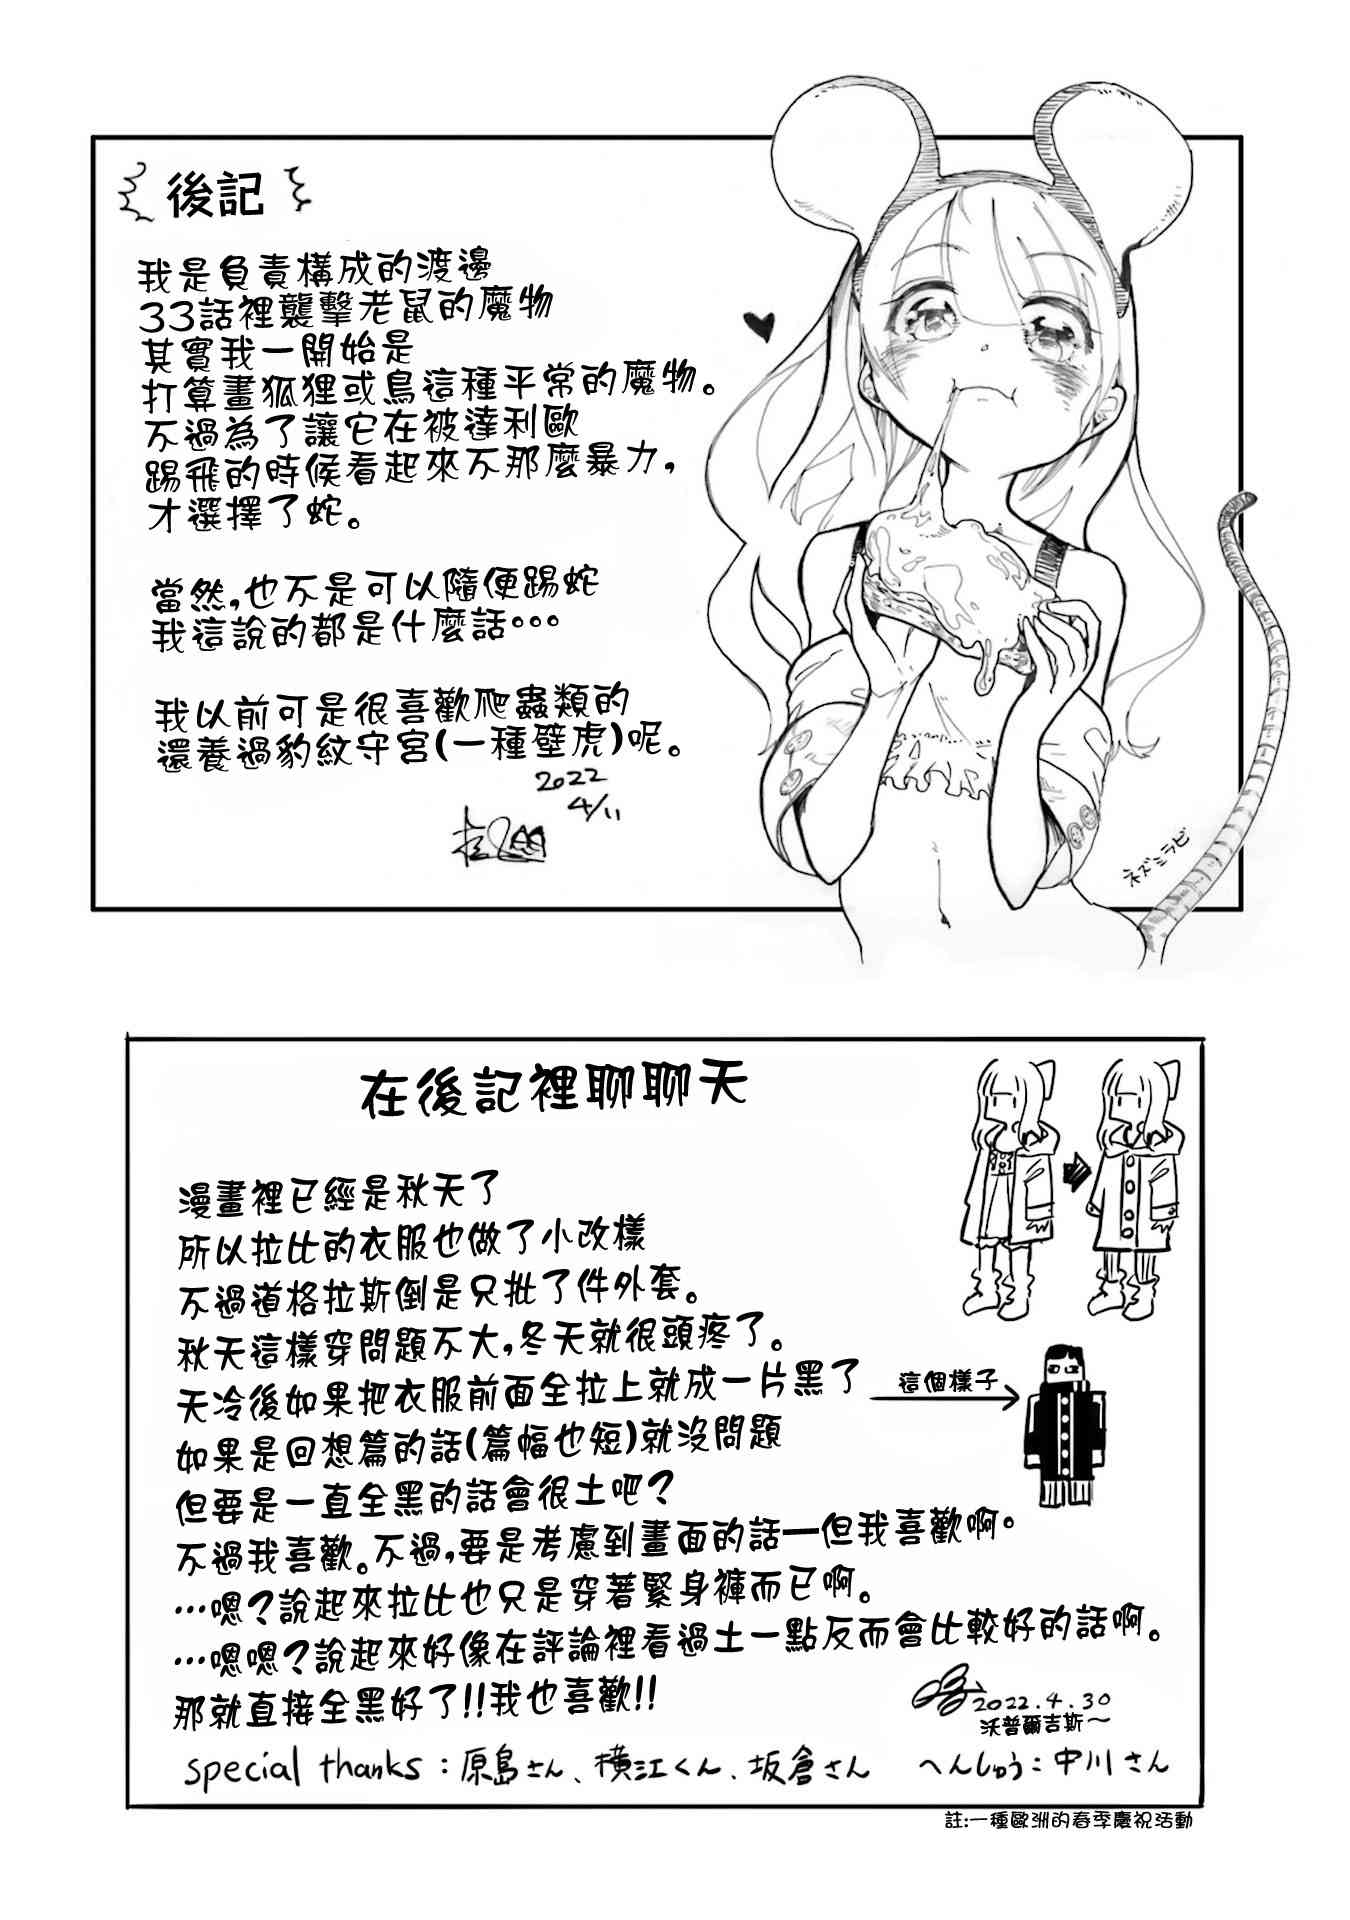 後記
我是負責構成的渡邊
33話裡襲擊老鼠的魔物
其實我一開始是
打算畫狐狸或鳥這種平常的魔物。
不過為了讓它在被達利歐
踢飛的時候看起來不那麼暴力,
才選擇了蛇。
當然,也不是可以隨便踢蛇
我這說的都是什麼話…
我以前可是很喜歡爬蟲類的
還養過豹紋守宮(一種壁虎)呢。
2022
4/11
ネズミラビ
在後記裡聊聊天
漫畫裡已經是秋天了
所以拉比的衣服也做了小改樣
不過道格拉斯倒是只批了件外套。
秋天這樣穿問題不大,冬天就很頭疼了。
天冷後如果把衣服前面全拉上就成一片黑了
這個樣子
如果是回想篇的話(篇幅也短)就沒問題
但要是一直全黑的話會很土吧?
不過我喜歡。不過,要是考慮到畫面的話—但我喜歡啊。
…嗯?說起來拉比也只是穿著緊身褲而已啊。
…嗯嗯?說起來好像在評論裡看過土一點反而會比較好的話啊。
那就直接全黑好了!!我也喜歡!!
2022.4.30
沃普爾吉斯～
special thanks:原島さん、横江くん、坂倉さん へんしゅう:中川さん
註:一種歐洲的春季慶祝活動